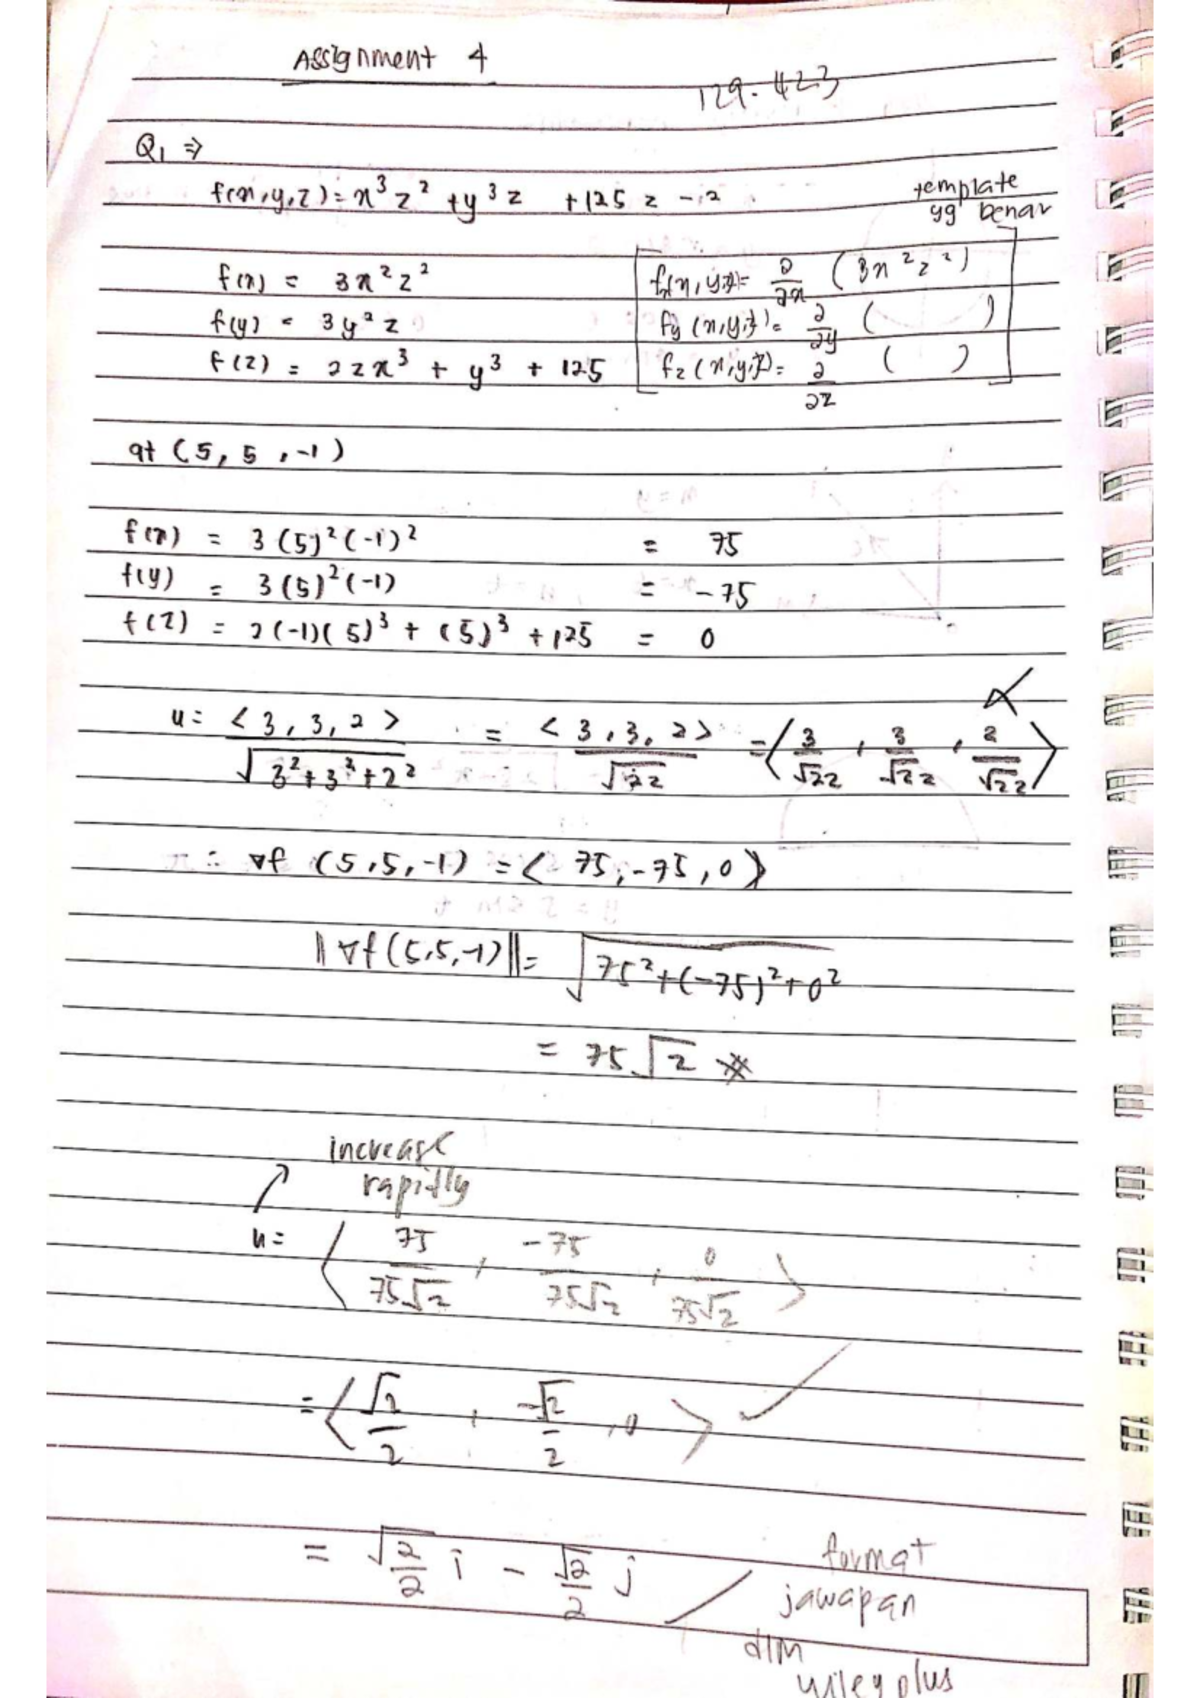 Assignment 4
129.423
Q1 ⇒
f(x,y,z) = x³z² + y³z + 125z - 2
template
yg benar
f(x) = 3x²z²
fx(x,y,z) = ∂/∂x (3x²z²)
f(y) = 3y²z
fy(x,y,z) = ∂/∂y ( )
f(z) = 2zx³ + y³ + 125
fz(x,y,z) = ∂/∂z ( )
at (5, 5, -1)
f(x) = 3(5)²(-1)² = 75
f(y) = 3(5)²(-1) = -75
f(z) = 2(-1)(5)³ + (5)³ + 125 = 0
u = <3, 3, 2> / √(3²+3²+2²) = <3, 3, 2> / √22 = <3/√22, 3/√22, 2/√22>
∴ ∇f (5,5,-1) = <75, -75, 0>
‖∇f(5,5,-1)‖ = √(75²+(-75)²+0²)
= 75√2
increase
rapidly
u = <75/75√2, -75/75√2, 0/75√2>
= <√2/2, -√2/2, 0>
= √2/2 i - √2/2 j
format
jawapan
dlm
wiley plus